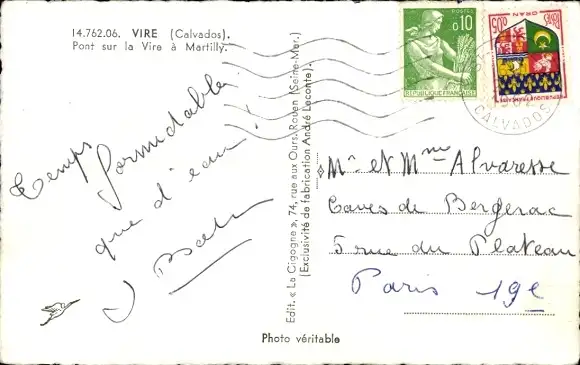 14.762.06. VIRE (Calvados).
Pont sur la Vire à Martilly.
Temps
formidable
que d'eau !
Edit. « La Cigogne », 74, rue aux Ours, Rouen (Seine-Mar.)
(Exclusivité de fabrication André Leconte).
POSTES
0,10
REPUBLIQUE FRANÇAISE
POSTES
ORAN
0,05
CALVADOS
Mr et Mme Alvaresse
Caves de Bergerac
5 rue du Plateau
Paris 19e
Photo véritable